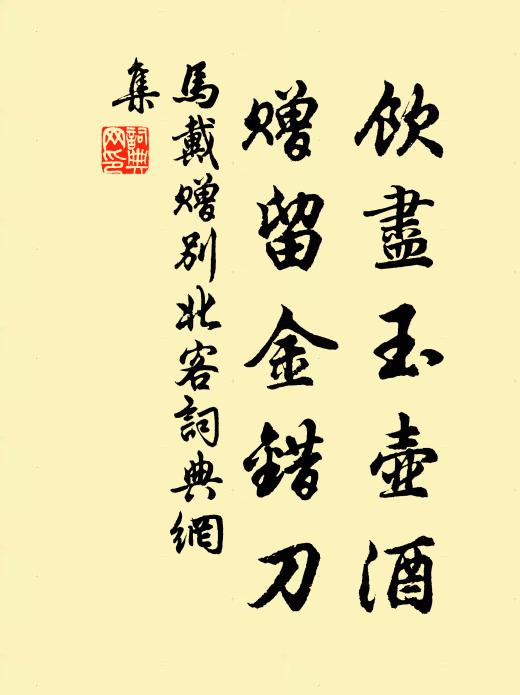 飲盡玉壺酒
贈留金錯刀
馬戴贈別北客詞典網
集
詞典
网印